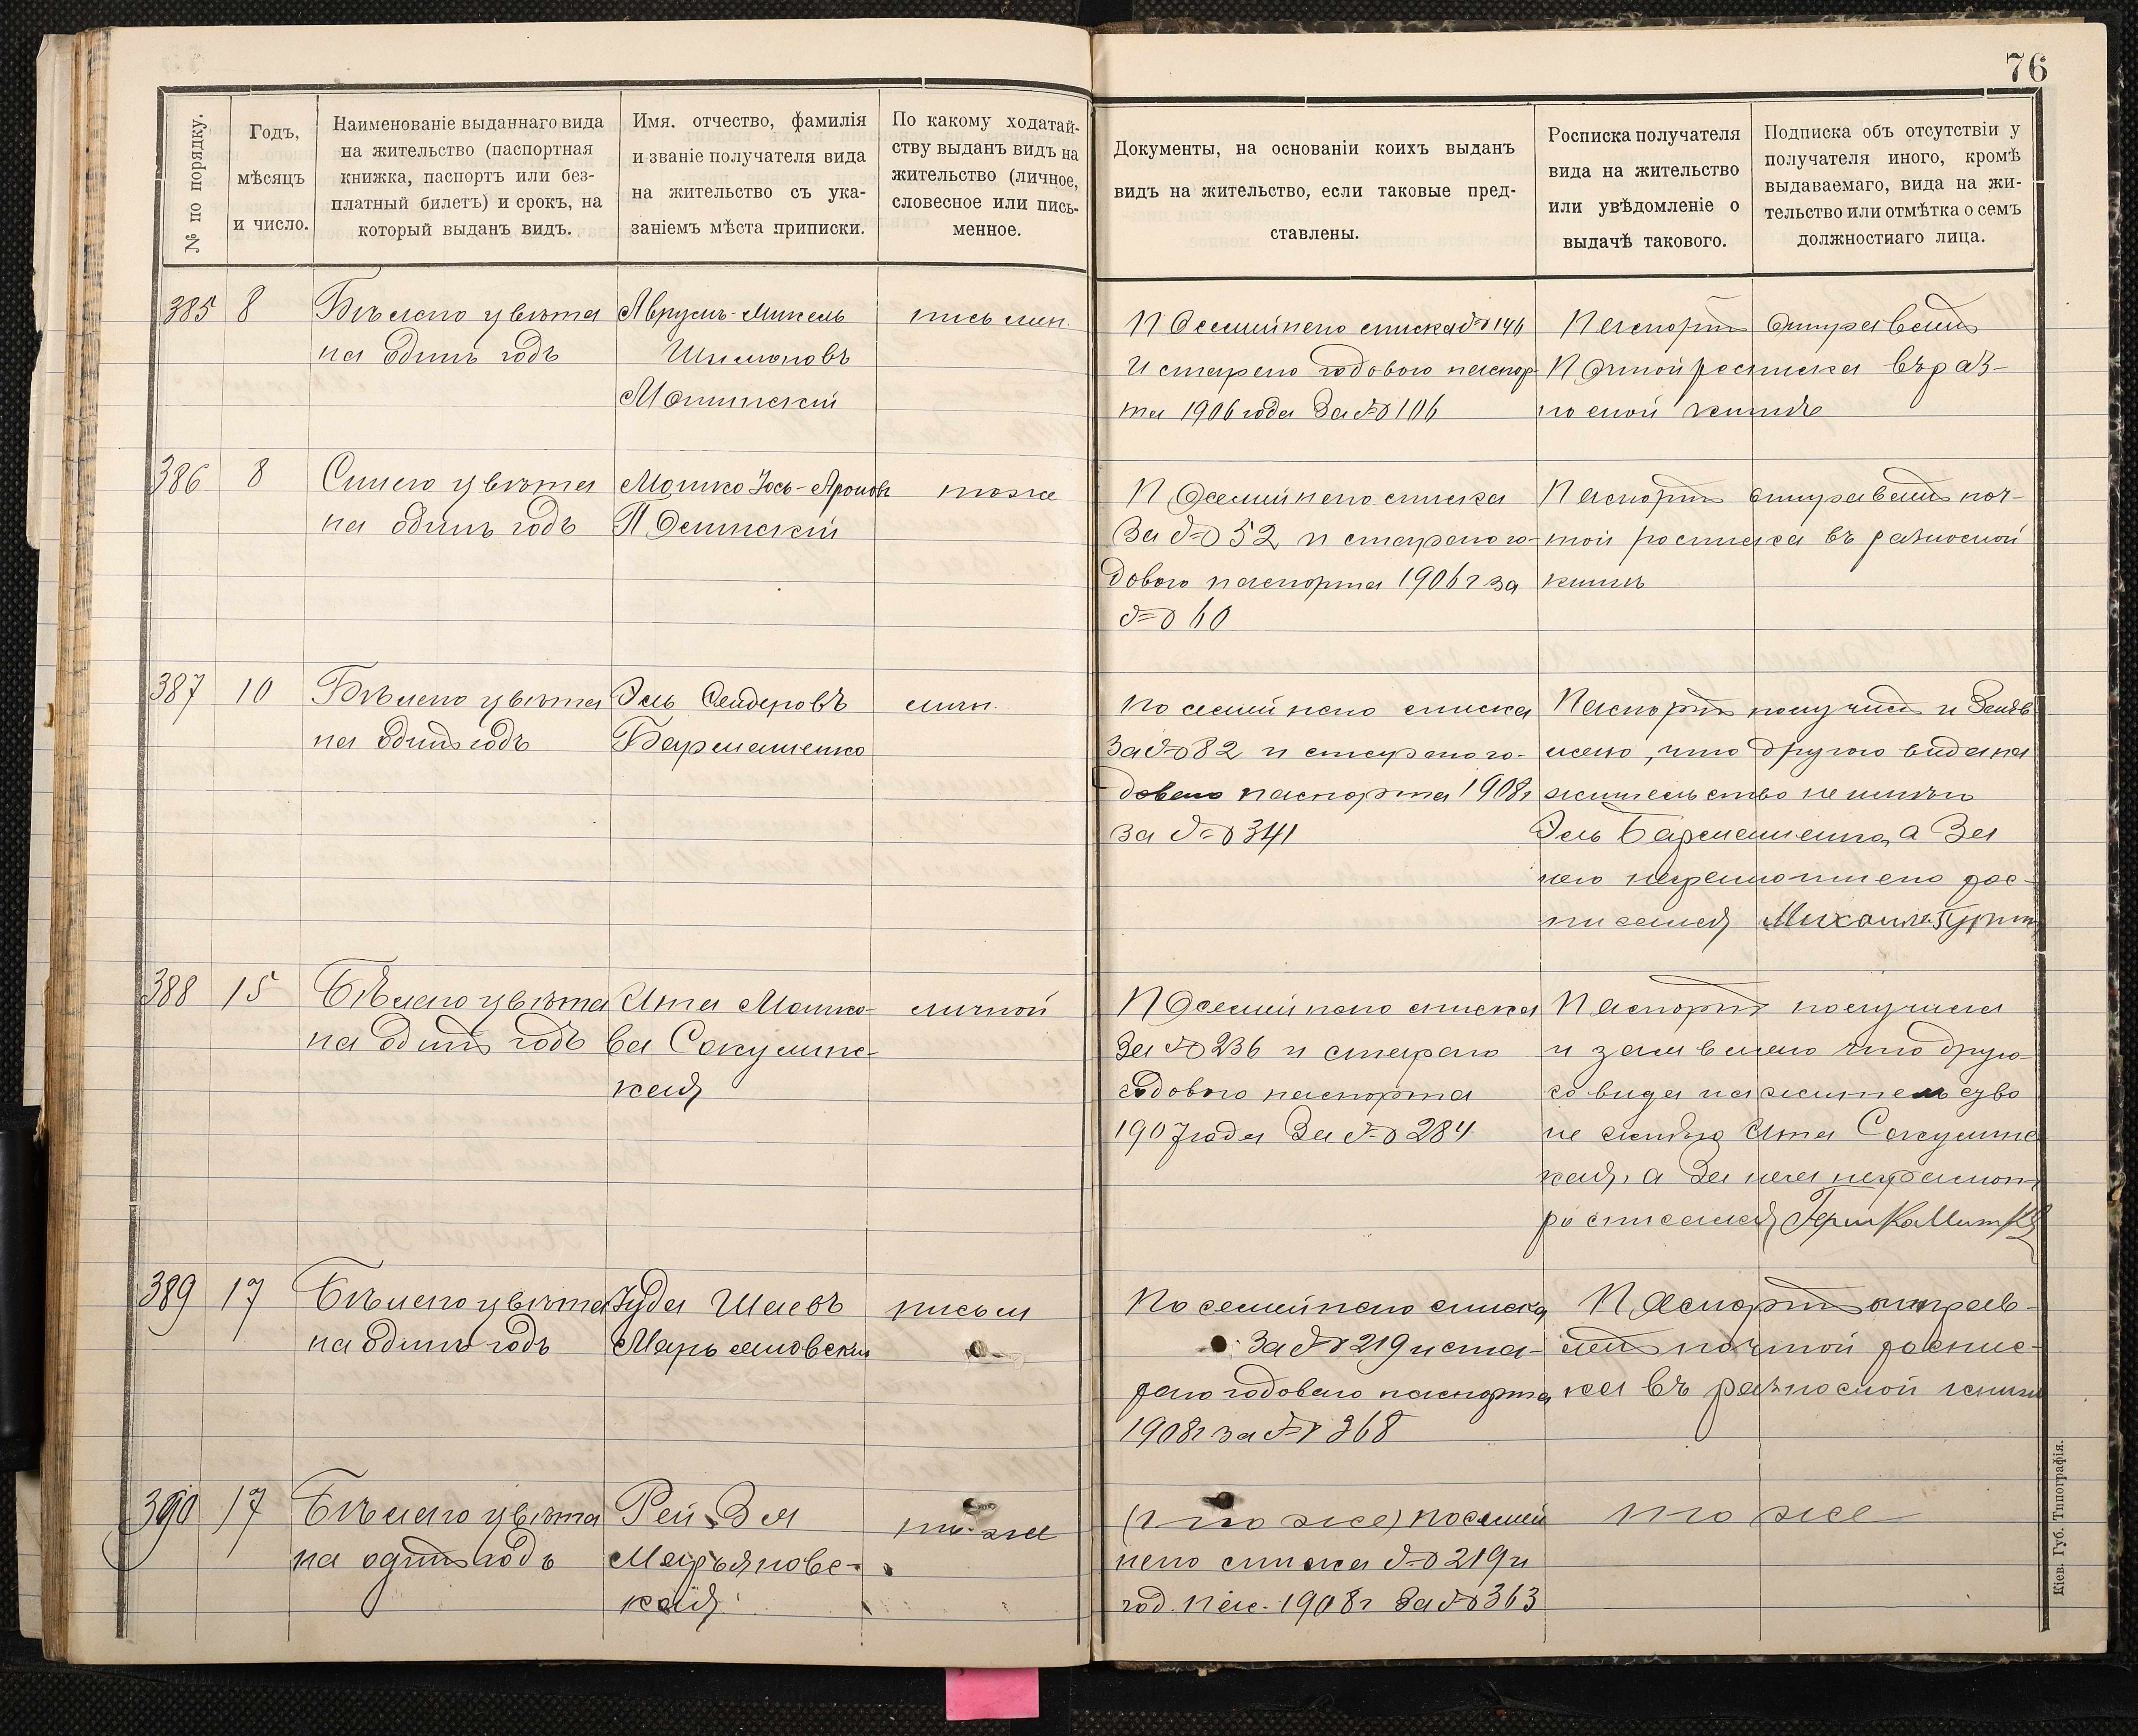 76
№ по порядку.
Годъ,
мѣсяцъ
и число.
Наименованіе выданнаго вида
на жительство (паспортная
книжка, паспортъ или без-
платный билетъ) и срокъ, на
который выданъ видъ.
Имя. отчество, фамилія
и званіе получателя вида
на жительство съ ука-
заніемъ мѣста приписки.
По какому ходатай-
ству выданъ видъ на
жительство (личное,
словесное или пись-
менное.
Документы, на основаніи коихъ выданъ
видъ на жительство, если таковые пред-
ставлены.
Росписка получателя
вида на жительство
или увѣдомленіе о
выдачѣ такового.
Подписка объ отсутствіи у
получателя иного, кромѣ
выдаваемаго, вида на жи-
тельство или отмѣтка о семъ
должностнаго лица.
385
8
Бѣлаго цвѣта
на одинъ годъ
Аврумъ-Микель
Шимоновъ
письмен.
Посемейнаго списка № 146
и стараго годового паспор-
та 1906 года за № 106
Паспортъ отправленъ
Почтой росписка въ раз-
носной книгѣ
386
8
Синего цвѣта
на одинъ годъ
Мошко Юсь-Ароновъ
Посемейнаго списка
за № 52 и стараго го-
дового паспорта 1906 г за
№ 60
Паспортъ отправленъ поч-
той росписка въ разносной
книгѣ
387
10
Бѣлаго цвѣта
на одинъ годъ
Эль Сендеровъ
личн.
посемейнаго списка
за № 82 и стараго го-
дового паспорта 1908 г
за № 341
Паспортъ получилъ и заяв-
ляю, что другого вида на
жительство не имѣю
Эль а за
него неграмотнаго рос-
писался
388
15
Бѣлаго цвѣта
на одинъ годъ
Ита Мошко-
ва Сокулинс-
кая
личной
Посемейнаго списка
за № 236 и стараго
годового паспорта
1907 года за № 284
Паспортъ получила
и заявляю что друго-
го вида на жительство
не имѣю Ита Сокулинс
кая, а за нея неграмотн
росписался
389
17
Бѣлаго цвѣта
на одинъ годъ
Іуда Шаевъ
Марьяновскій
письм
По семейнаго списка
за № 219 и ста-
раго годоваго паспорта
1908 г за № 368
Паспортъ отправ-
ленъ почтой роспис-
ка въ разносной книгѣ
390
17
Бѣлаго цвѣта
на одинъ годъ
Рейзя
Марьяновс-
кая
тоже
(тоже) посемей
наго списка № 219 и
год. пас. 1908 г за № 363
тоже
Кіев. Губ. Типографія.